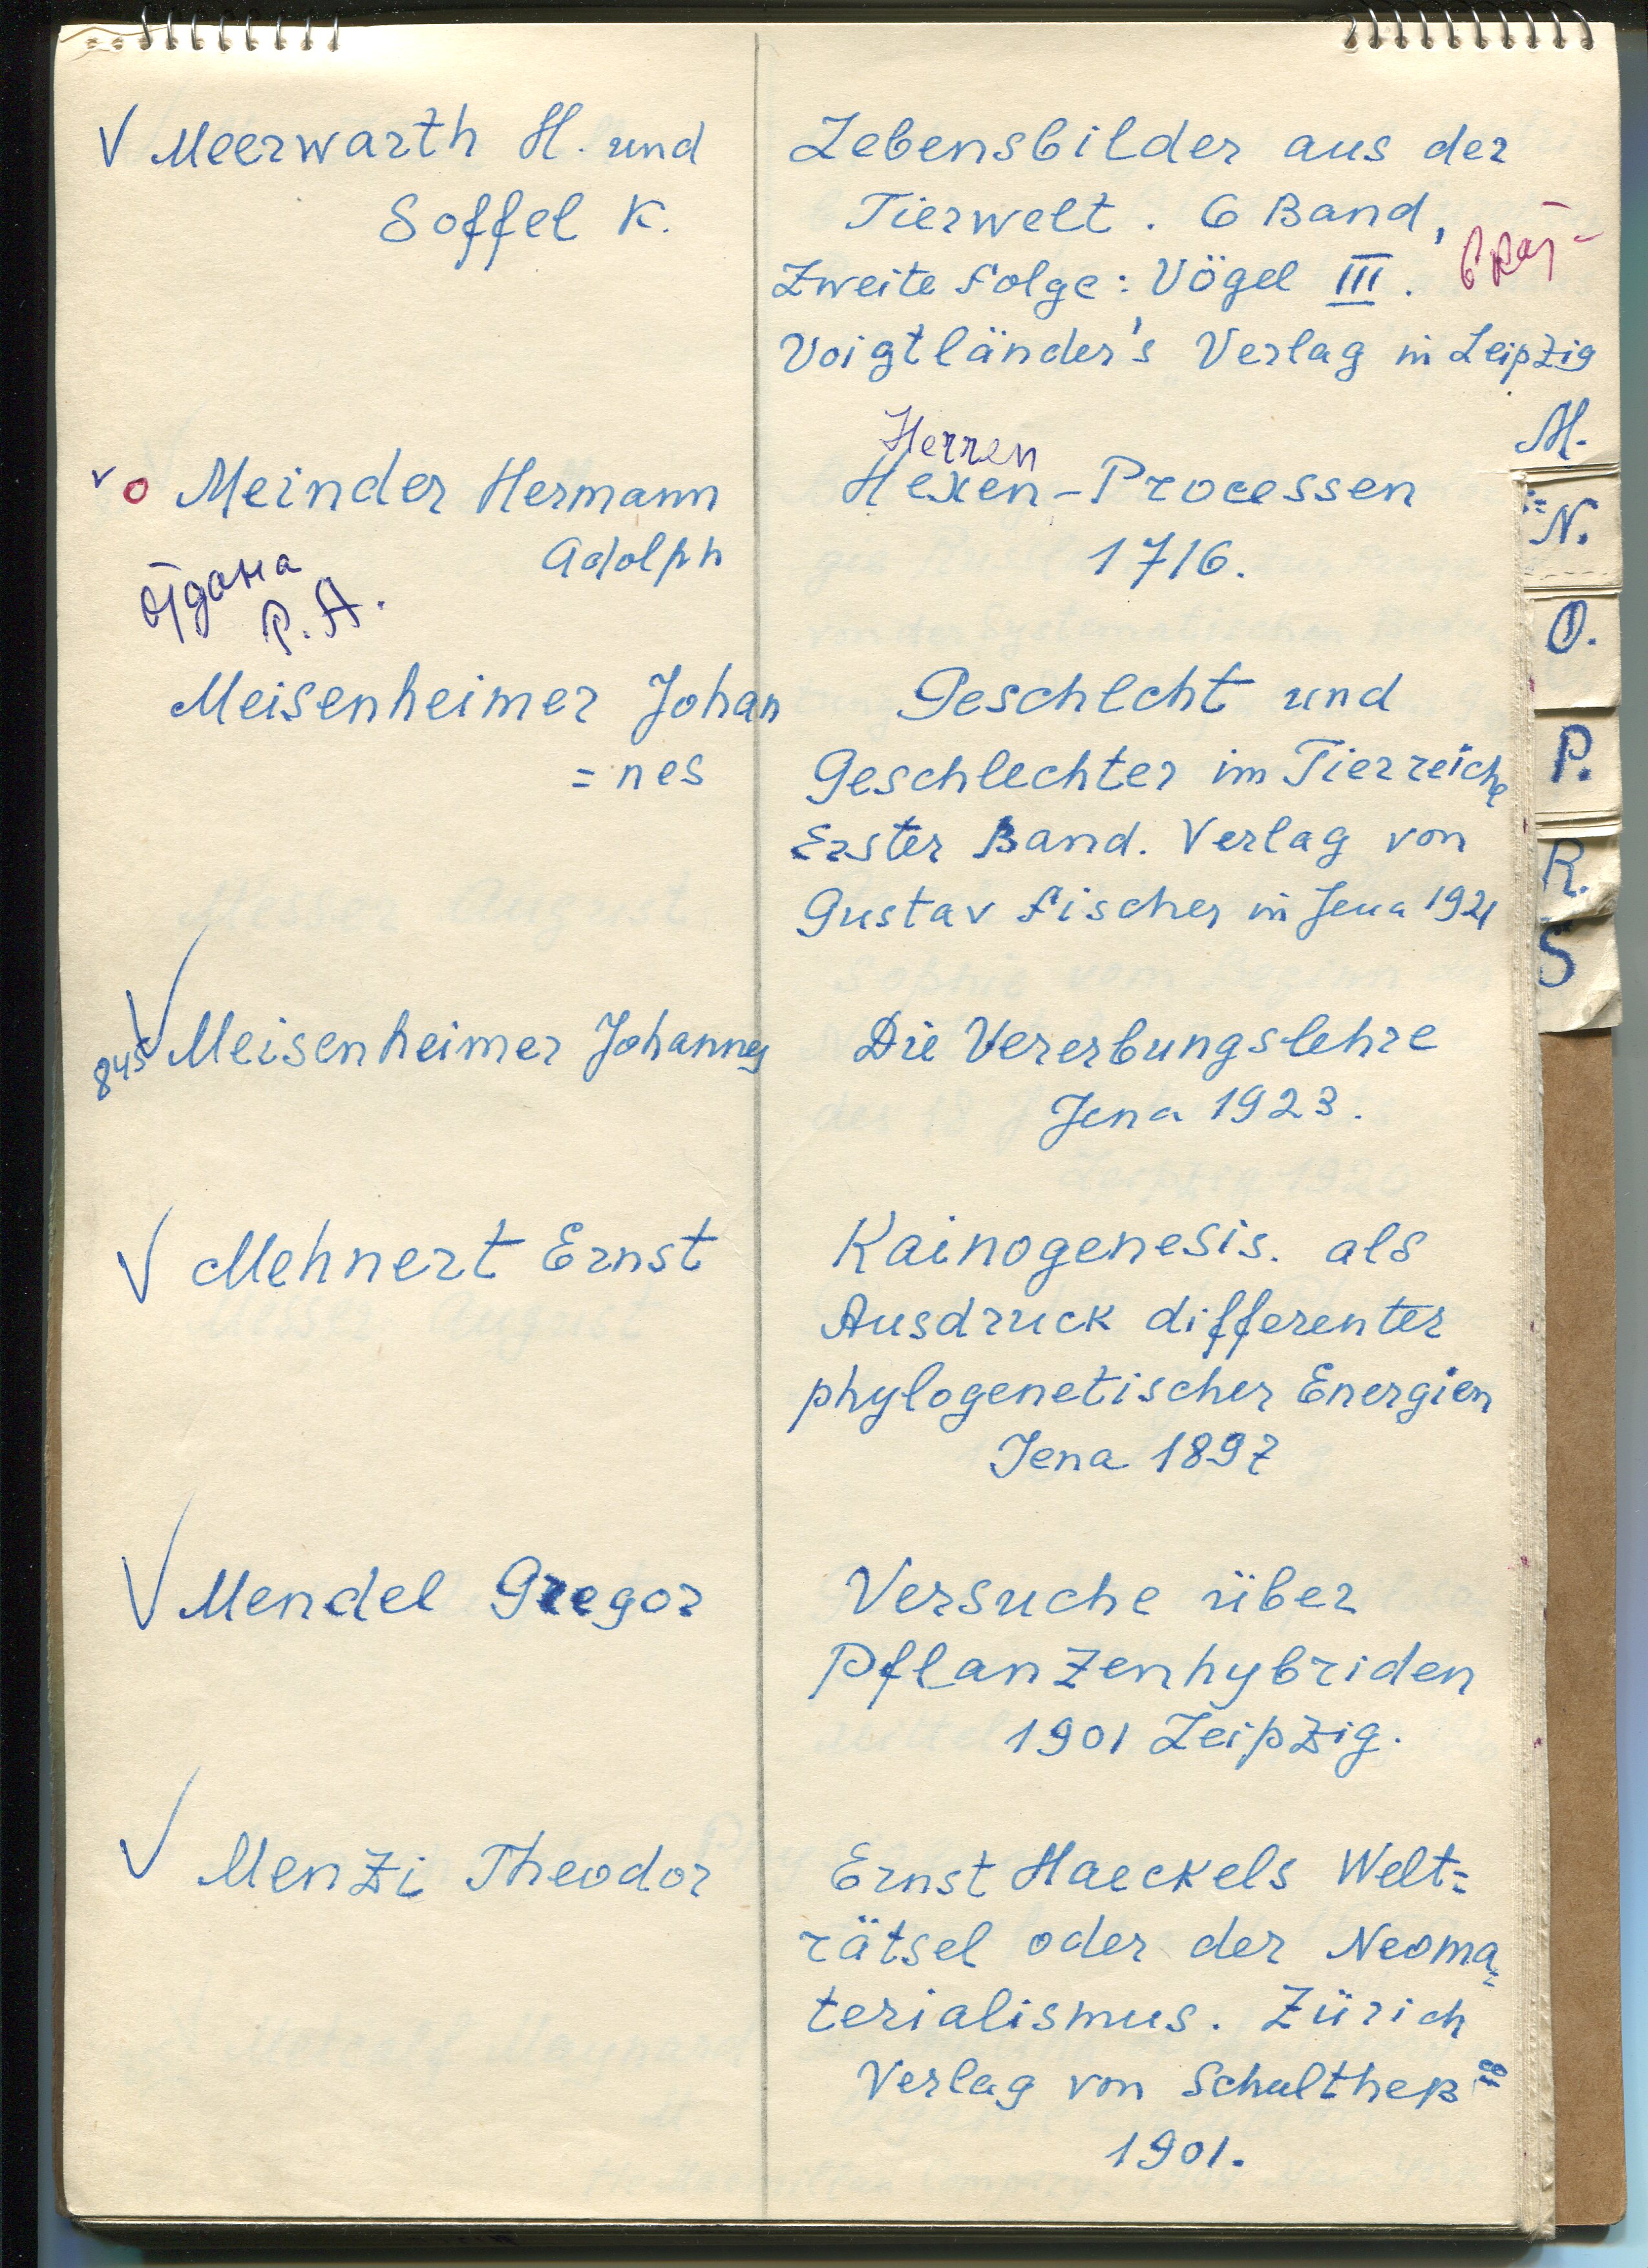 V Meerwarth H. und
Soffel K.
Lebensbilder aus der
Tierwelt. 6 Band,
Zweite Folge: Vögel III.
Voigtländer's Verlag in Leipzig
V o Meinder Hermann
Adolph
отдана
Р. А.
Herren
Hexen-Processen
1716.
Meisenheimer Johan
=nes
Geschlcht und
Geschlechter im Tierreiche
Erster Band. Verlag von
Gustav Fischer in Jena 1921
V 845 Meisenheimer Johannes
Die Vererbungslehre
Jena 1923.
V Mehnert Ernst
Kainogenesis. als
Ausdruck differenter
phylogenetischer Energien
Jena 1897
V Mendel Gregor
Versuche über
Pflanzenhybriden
1901 Leipzig.
V Menzi Theodor
Ernst Haeckels Welt=
rätsel oder der Neoma=
terialismus. Zürich
Verlag von Schultheß
1901.
M.
N.
O.
P.
R.
S